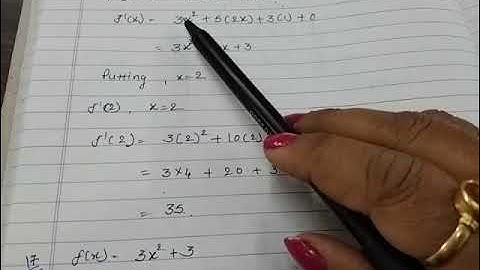 f'(x) = 3x² + 5(2x) + 3(1) + 0
= 3x² x + 3
Putting , x=2
f'(2) , x=2
f'(2) = 3(2)² + 10(2)
= 3×4 + 20 + 3
= 35
17 f(x) = 3x² + 3